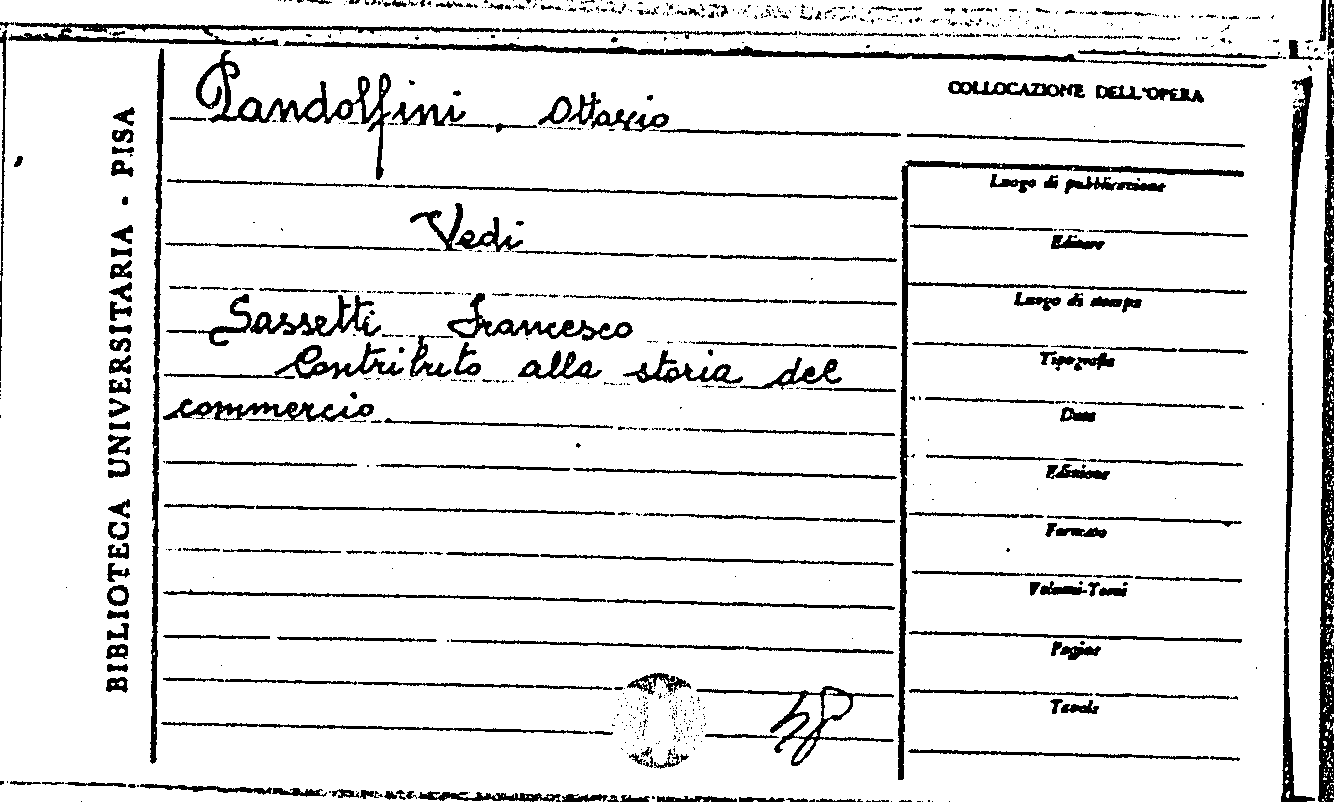 BIBLIOTECA UNIVERSITARIA - PISA
Pandolfini, Ottavio
Vedi
Sassetti, Francesco
Contributo alla storia del
commercio.
COLLOCAZIONE DELL'OPERA
Luogo di pubblicazione
Editore
Luogo di stampa
Tipografia
Data
Edizione
Formato
Volumi-Tomi
Pagine
Tavole